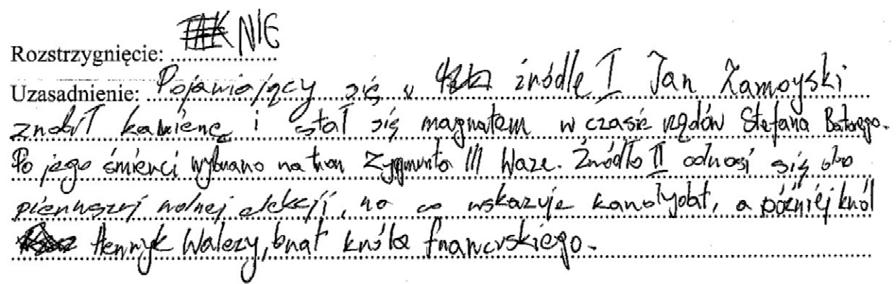 Rozstrzygnięcie: NIE
Uzasadnienie: Pojawiający się w źródle I Jan Zamoyski
zrobił karierę i stał się magnatem w czasie rządów Stefana Batorego.
Po jego śmierci wybrano na tron Zygmunta III Wazę. Źródło II odnosi się do
pierwszej wolnej elekcji, na co wskazuje kandydat, a później król
Henryk Walezy, brat króla francuskiego.